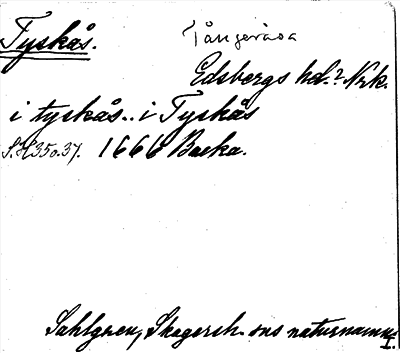 Tyskås. Tångeråsa
Edsbergs hd.? Nrk.
i tyskås.. i Tyskås
S.H 350.37. 1666 Backa.
Sahlgren, Skagersh. sns naturnamn
I.